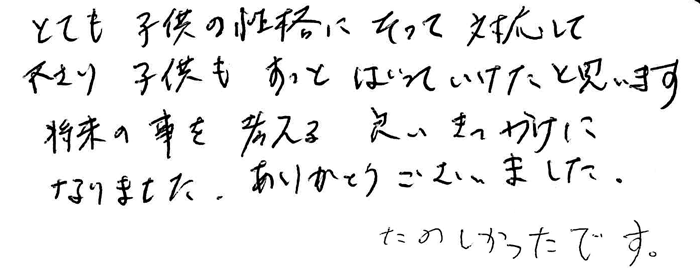 とても 子供の性格に そって 対応して
子供も すっと はいっていけたと思います
将来の事を 考える 良い きっかけに
なりました. ありがとうございました.
たのしかったです。